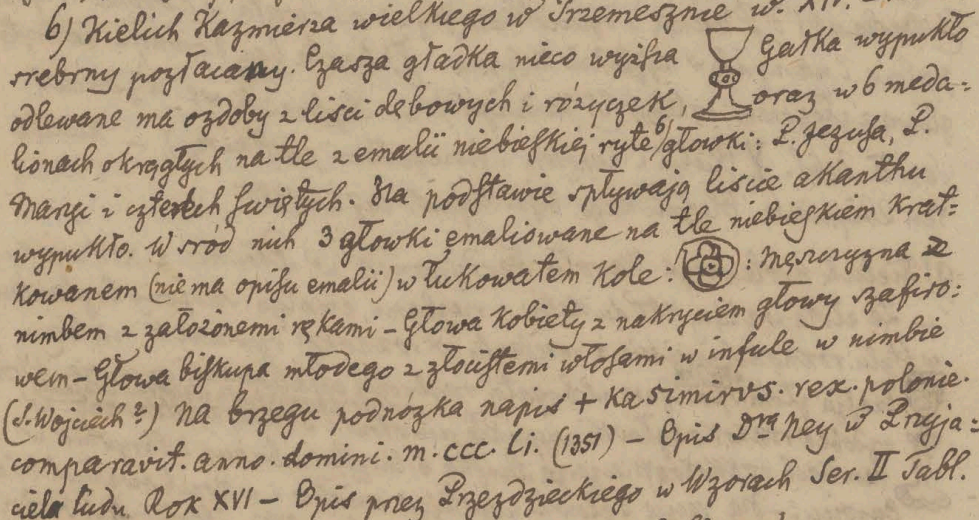 6) Kielich Kazmierza wielkiego w Trzemesznie w. XIV. –
srebrny pozłacany. Czasza gładka nieco wyższa Gałka wypukło
odlewane ma ozdoby z liści dębowych i różyczek, oraz w 6 meda=
lionach okrągłych na tle z emalii niebieskiej ryte 6/ głowki: P. Jezusa, P.
Maryi i czterech świętych. Na podstawie spływają liście akanthu
wypukło. Wsród nich 3 głowki emaliowane na tle niebieskiem krat=
kowanem (niema opisu emalii) w łukowatem kole: : Męszczyzna z
nimbem z założonemi rękami – Głowa kobiety z nakryciem głowy szafiro=
wem – Głowa biskupa młodego z złocistemi włosami w infule w nimbie
(S. Wojciech?) Na brzegu podnózka napis + kasimirvs. rex. polonie.
comparavit. anno. domini. m. ccc. Li. (1351) – Opis Dra Ney w Przyja=
cielu ludu Rok XVI – Opis przez Przezdzieckiego w Wzorach Ser. II Tabl.